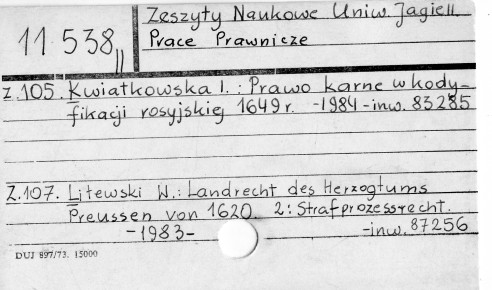 Zeszyty Naukowe Uniw. Jagiell.
11 538 II Prace Prawnicze
z. 105. Kwiatkowska I.: Prawo karne w kody-
fikacji rosyjskiej 1649 r. -1984- inw. 83285
Z. 107. Litewski W.: Landrecht des Herzogtums
Preussen von 1620. 2: Strafprozessrecht.
-1983- -inw. 87256
DUJ 897/73. 15000